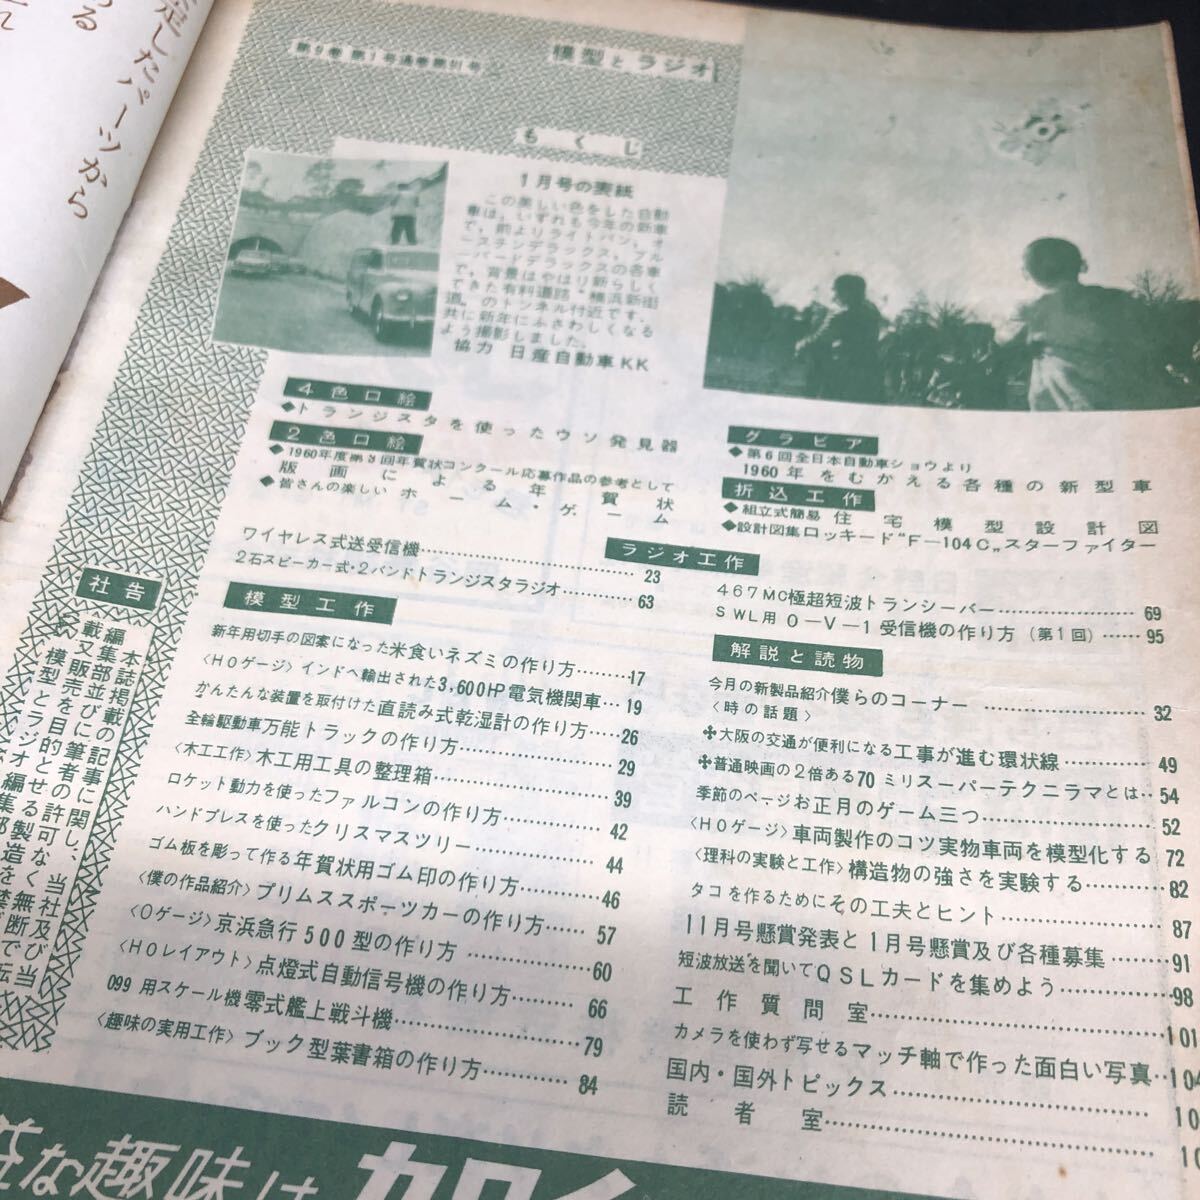 足したパーツから
模型とラジオ
もくじ
1月号の表紙
この美しい色をした自動
車は、いずれも今年の新車
で、前よりライトバン、オー
スチンデラックス、ブルー
バードデラックスの各車
で、背景はやはり新らしく
できた有料道路・横浜新街
道。のトンネル付近です。
共に新年にふさわしくなる
よう撮影しました。
協力 日産自動車KK
4色口絵
◆トランジスタを使ったウソ発見器
2色口絵
◆1960年度第3回年賀状コンクール応募作品の参考として
版画による年賀状
◆皆さんの楽しいホーム・ゲーム
グラビア
◆第6回全日本自動車ショウより
1960年をむかえる各種の新型車
折込工作
◆組立式簡易住宅模型設計図
◆設計図集ロッキード"F—104C„スターファイター
ラジオ工作
ワイヤレス式送受信機……23
2石スピーカー式・2バンドトランジスタラジオ……63
467MC極超短波トランシーバー……69
SWL用 0—V—1受信機の作り方(第1回)……95
模型工作
新年用切手の図案になった米食いネズミの作り方……17
〈HOゲージ〉インドへ輸出された3,600HP電気機関車…19
かんたんな装置を取付けた直読み式乾湿計の作り方……26
全輪駆動車万能トラックの作り方……29
〈木工工作〉木工用工具の整理箱……39
ロケット動力を使ったファルコンの作り方……42
ハンドプレスを使ったクリスマスツリー……44
ゴム板を彫って作る年賀状用ゴム印の作り方……46
〈僕の作品紹介〉プリムススポーツカーの作り方……57
〈Oゲージ〉京浜急行500型の作り方……60
〈HOレイアウト〉点燈式自動信号機の作り方……66
099用スケール機零式艦上戦斗機……79
〈趣味の実用工作〉ブック型葉書箱の作り方……84
解説と読物
今月の新製品紹介僕らのコーナー……32
〈時の話題〉
✤大阪の交通が便利になる工事が進む環状線……49
✤普通映画の2倍ある70ミリスーパーテクニラマとは…54
季節のページお正月のゲーム三つ……52
〈HOゲージ〉車両製作のコツ実物車両を模型化する…72
〈理科の実験と工作〉構造物の強さを実験する……82
タコを作るためにその工夫とヒント……87
11月号懸賞発表と1月号懸賞及び各種募集……91
短波放送を聞いてQSLカードを集めよう……98
工作質問室……101
カメラを使わず写せるマッチ軸で作った面白い写真…104
国内・国外トピックス……10
読者室……10
社告
本誌掲載の記事に関し、当社及び当
編集部並びに筆者の許可なく無断で転
益な趣味は